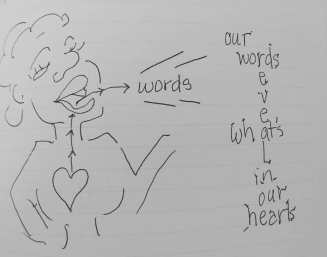 words
our
words
e
v
e
what's
L
in
our
hearts